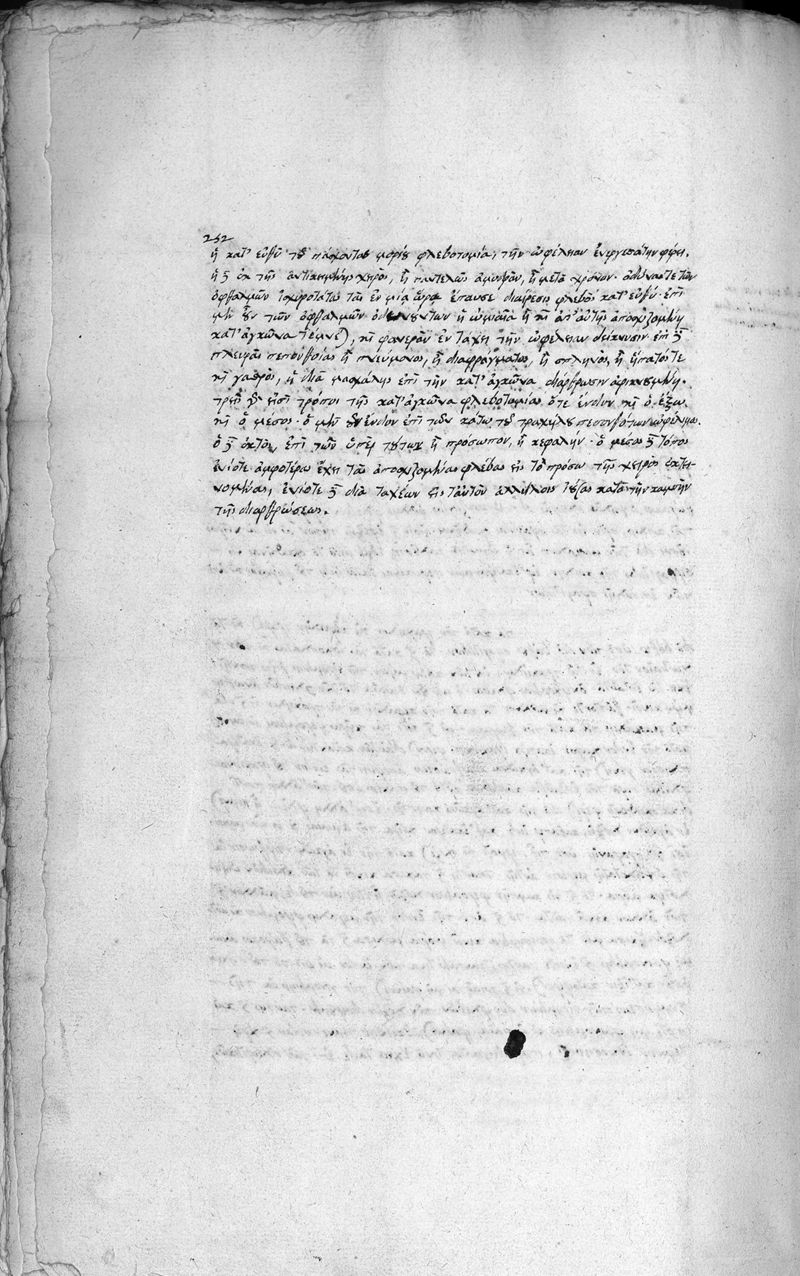 252
ἡ κατ' εὐθὺ τοῦ πάσχοντος μορίου φλεβοτομία, τὴν ὠφέλειαν ἐναργεστάτην φέρει.
ἡ δὲ ἐκ τῆς ἀντικειμένης χειρὸς, ἢ παντελῶς ἀμυδρὰν, ἢ μετὰ χρόνον. ὀδύνας τε τῶν
ὀφθαλμῶν ἰσχυροτάτας τὰς ἐν μιᾷ ὥρᾳ ἔπαυσε διαίρεση φλεβὸς κατ' εὐθὺ. ἐπὶ
μὲν οὖν τῶν ὀφθαλμῶν ὀδυνώντων ἡ ὠμιαία ἢ καὶ ἀπ' αὐτῆς ἀποσχιζομένη
κατ' ἀγκῶνα τέμνεται, καὶ φανερὰν ἐν τάχει τὴν ὠφέλειαν δείκνυσιν ἐπὶ δὲ
πλευρᾶς πεπονθυίας ἢ πνεύμονος, ἢ διαφράγματος, ἢ σπληνὸς, ἢ ἥπατός τε
καὶ γαστρὸς, ἡ διὰ μασχάλης ἐπὶ τὴν κατ' ἀγκῶνα διάρθρωσιν ἀφικνουμένη.
τρεῖς γὰρ εἰσὶ τρόποι τῆς κατ' ἀγκῶνα φλεβοτομίας ὅ τε ἔνδον καὶ ὁ ἔξω
καὶ ὁ μέσος. ὁ μὲν οὖν ἔνδον ἐπὶ τῶν κάτω τοῦ τραχήλου πεπονθότων ὠφέλιμος.
ὁ δὲ ἐκτὸς, ἐπὶ τῶν ὑπὲρ τούτων ἢ πρόσωπον, ἢ κεφαλὴν. ὁ μέσος δὲ τόπος
ἐνίοτε ἀμφοτέρας ἔχει τὰς ἀποσχιζομένας φλέβας εἰς τὸ πρόσω τῆς χειρὸς ἐκτει-
νομένας, ἐνίοτε δὲ διὰ ταχέων εἰς ταυτὸν ἀλλήλαις ἰούσας κατὰ τὴν καμπὴν
τῆς διαρθρώσεως.